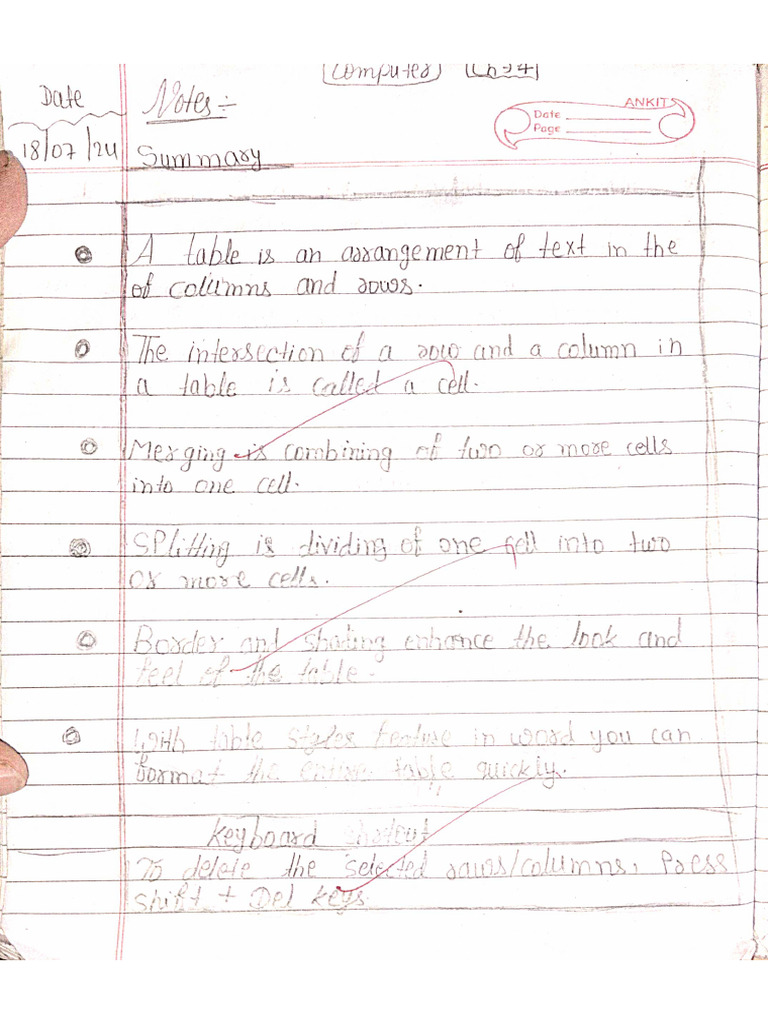 Computer Ch-4
Date Notes:-
ANKIT
Date
Page
18/07/24 Summary
A table is an arrangement of text in the
of columns and rows.
The intersection of a row and a column in
a table is called a cell.
Merging is combining of two or more cells
into one cell.
Splitting is dividing of one cell into two
or more cells.
Border and shading enhance the look and
feel of the table.
With table styles feature in word you can
format the entire table quickly.
Keyboard Shortcut
To delete the selected rows/columns, Press
Shift + Del keys.